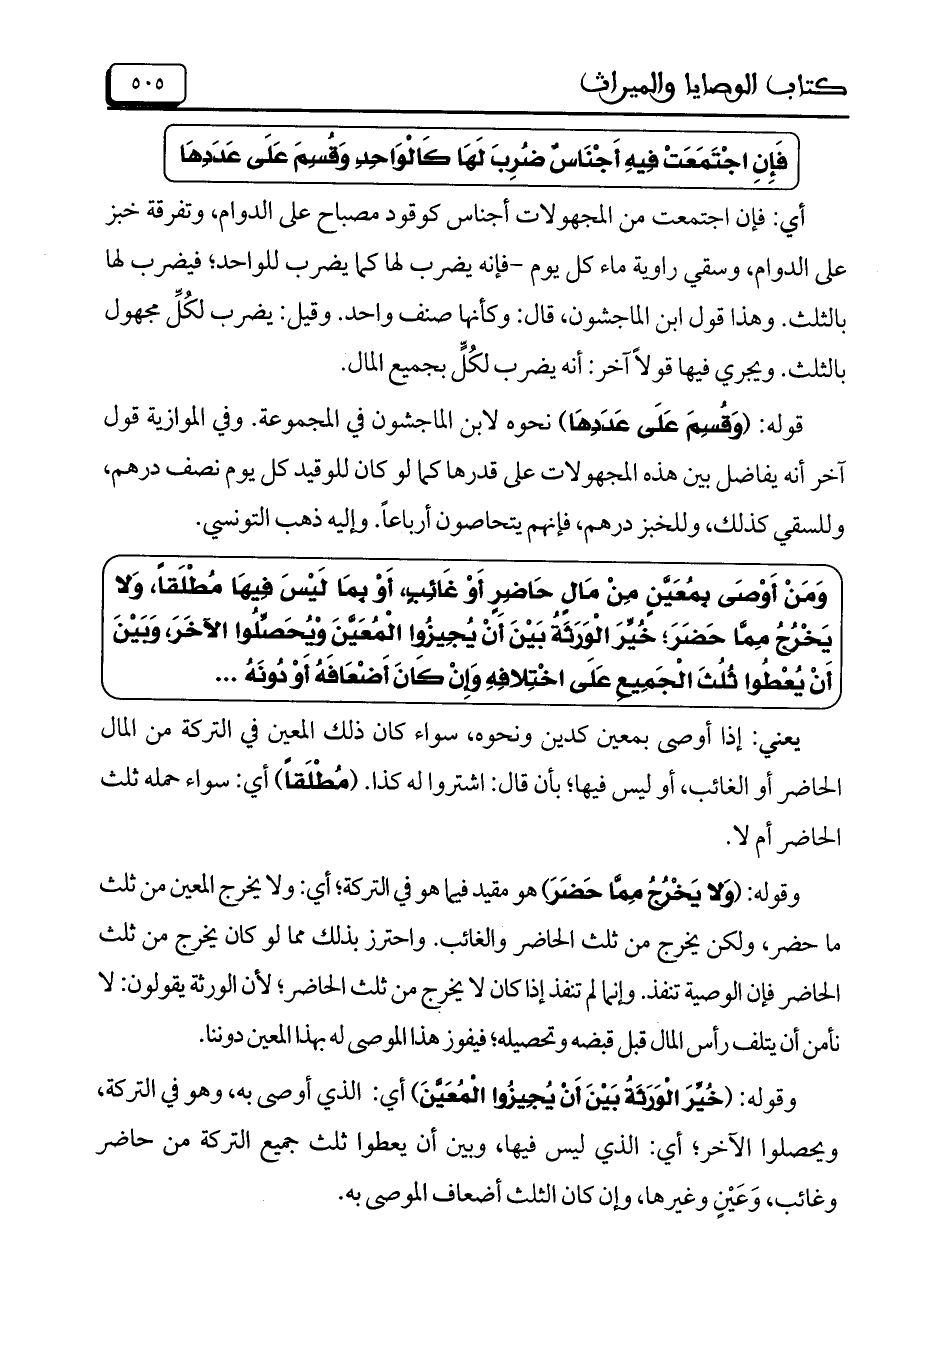 كتاب الوصايا والميراث
٥٠٥
فَإِنِ اجْتَمَعَتْ فِيهِ أَجْنَاسٌ ضُرِبَ لَهَا كَالْوَاحِدِ وَقُسِمَ عَلَى عَدَدِهَا
أي: فإن اجتمعت من المجهولات أجناس كوقود مصباح على الدوام، وتفرقة خبز
على الدوام، وسقي راوية ماء كل يوم –فإنه يضرب لها كما يضرب للواحد؛ فيضرب لها
بالثلث. وهذا قول ابن الماجشون، قال: وكأنها صنف واحد. وقيل: يضرب لكُلِّ مجهول
بالثلث. ويجري فيها قولاً آخر: أنه يضرب لكُلٍّ بجميع المال.
قوله: (وَقُسِمَ عَلَى عَدَدِهَا) نحوه لابن الماجشون في المجموعة. وفي الموازية قول
آخر أنه يفاضل بين هذه المجهولات على قدرها كما لو كان للوقيد كل يوم نصف درهم،
وللسقي كذلك، وللخبز درهم، فإنهم يتحاصون أرباعاً. وإليه ذهب التونسي.
وَمَنْ أَوْصَى بِمُعَيَّنٍ مِنْ مَالٍ حَاضِرٍ أَوْ غَائِبٍ، أَوْ بِمَا لَيْسَ فِيهَا مُطْلَقاً، وَلا
يَخْرُجُ مِمَّا حَضَرَ؛ خُيِّرَ الْوَرَثَةُ بَيْنَ أَنْ يُجِيزُوا الْمُعَيَّنَ وَيُحَصِّلُوا الآخَرَ، وَبَيْنَ
أَنْ يُعْطُوا ثُلُثَ الْجَمِيعِ عَلَى اخْتِلافِهِ وَإِنْ كَانَ أَضْعَافَهُ أَوْ دُونَهُ ...
يعني: إذا أوصى بمعين كدين ونحوه، سواء كان ذلك المعين في التركة من المال
الحاضر أو الغائب، أو ليس فيها؛ بأن قال: اشتروا له كذا. (مُطْلَقاً) أي: سواء حمله ثلث
الحاضر أم لا.
وقوله: (وَلا يَخْرُجُ مِمَّا حَضَرَ) هو مقيد فيما هو في التركة؛ أي: ولا يخرج المعين من ثلث
ما حضر، ولكن يخرج من ثلث الحاضر والغائب. واحترز بذلك مما لو كان يخرج من ثلث
الحاضر فإن الوصية تنفذ. وإنما لم تنفذ إذا كان لا يخرج من ثلث الحاضر؛ لأن الورثة يقولون: لا
نأمن أن يتلف رأس المال قبل قبضه وتحصيله؛ فيفوز هذا الموصى له بهذا المعين دوننا.
وقوله: (خُيِّرَ الْوَرَثَةُ بَيْنَ أَنْ يُجِيزُوا الْمُعَيَّنَ) أي: الذي أوصى به، وهو في التركة،
ويحصلوا الآخر؛ أي: الذي ليس فيها، وبين أن يعطوا ثلث جميع التركة من حاضر
وغائب، وَعَيْنٍ وغيرها، وإن كان الثلث أضعاف الموصى به.